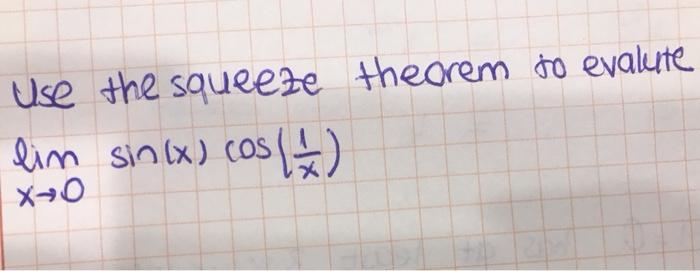 Use the squeeze theorem to evalute
lim sin(x) cos(1/x)
x→0